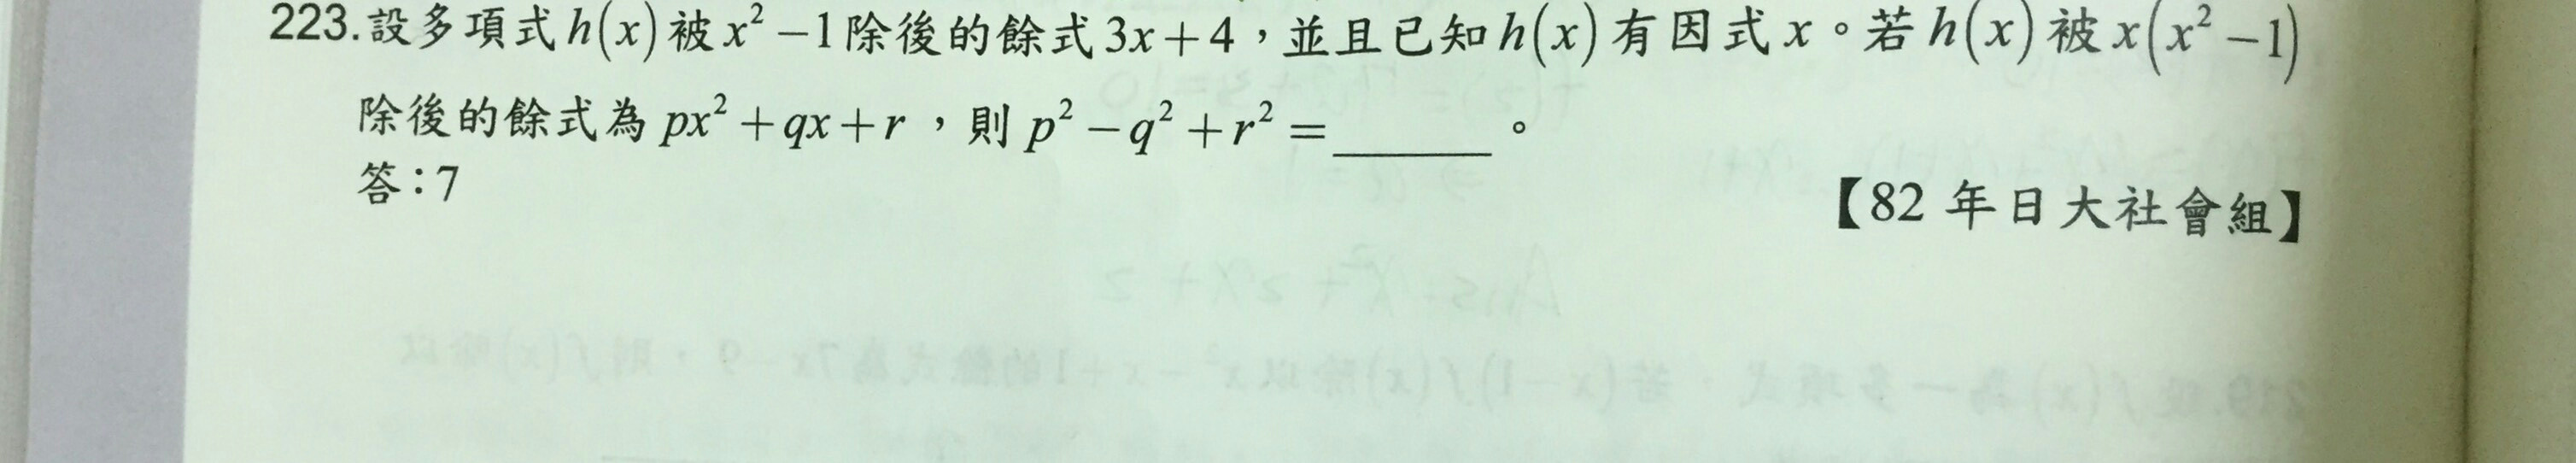 223.設多項式 h(x) 被 x² −1 除後的餘式 3x+4,並且已知 h(x) 有因式 x。若 h(x) 被 x(x² −1)
除後的餘式為 px² +qx+r ,則 p² −q² +r² =______ 。
答:7
【82 年日大社會組】